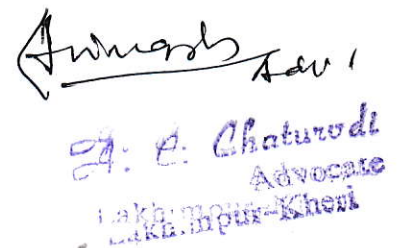 Avinash Adv.
A. C. Chaturvedi
Advocate
Lakhimpur-Kheri